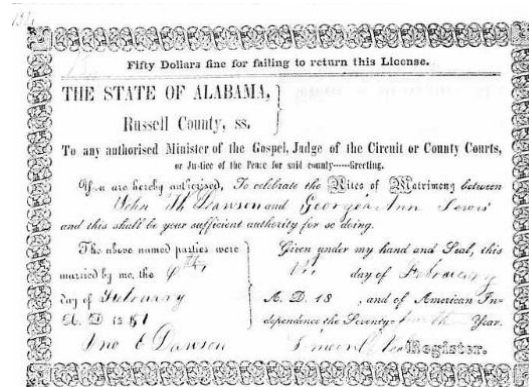 Fifty Dollars fine for failing to return this License.
THE STATE OF ALABAMA,
Russell County, ss.
To any authorised Minister of the Gospel, Judge of the Circuit or County Courts,
or Justice of the Peace for said county-----Greeting.
You are hereby authorised, To celebrate the Rites of Matrimony between
John Dawson and Georgea Ann Lewis
and this shall be your sufficient authority for so doing.
The above named parties were
married by me, the
day of February
A. D 18 51
Jno E Dawson
Given under my hand and Seal, this
day of February
A. D. 18 , and of American In-
dependence the Seventy- Year.
Register.